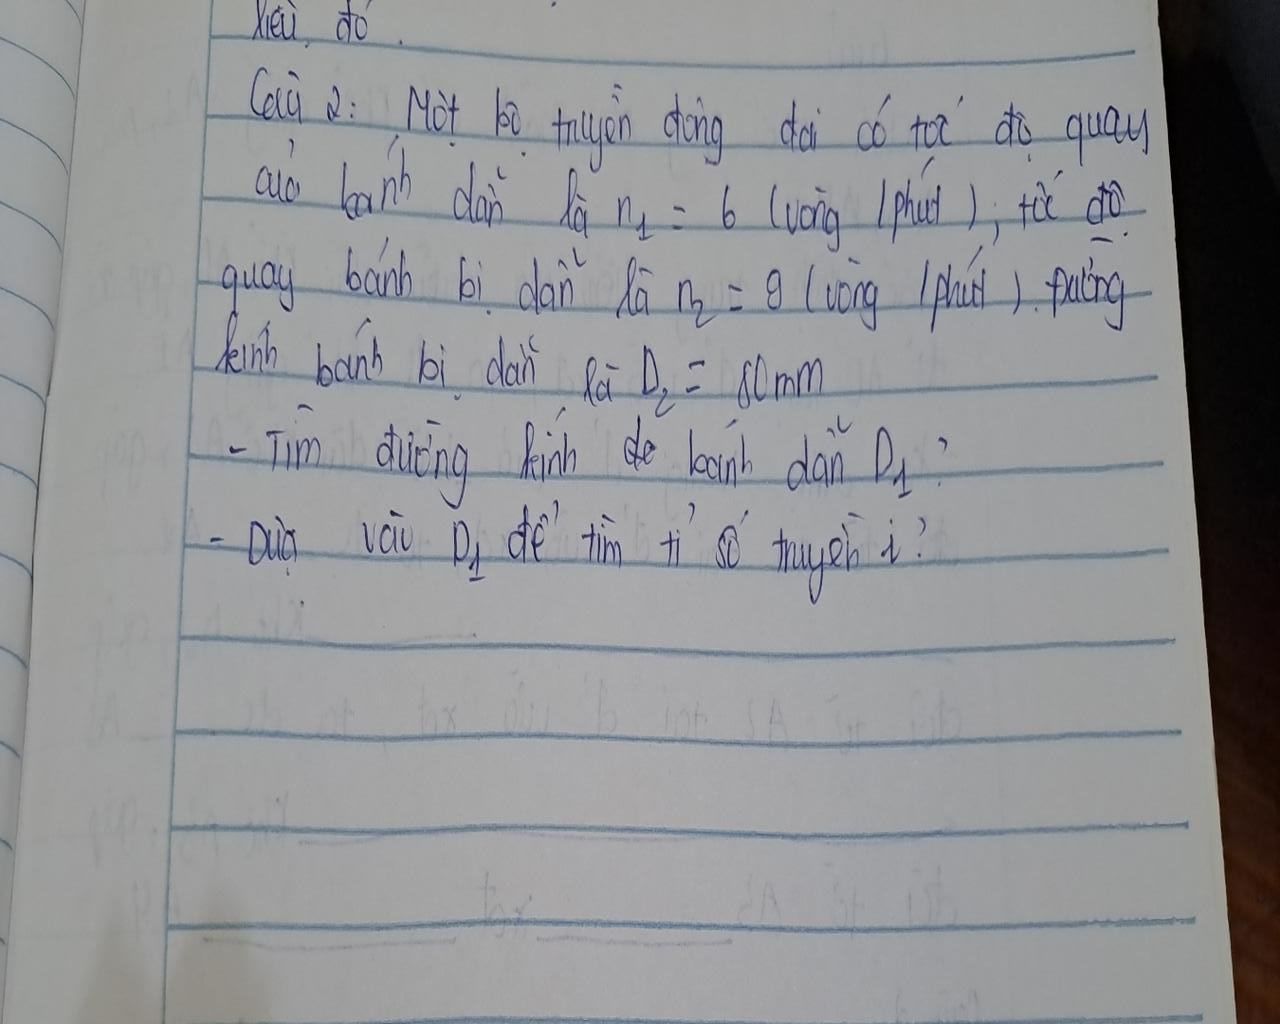 kiểu đó.
Câu 2: Một bộ truyền động đai có tốc độ quay
của bánh dẫn là n₁ = 6 (vòng /phút), tốc độ
quay bánh bị dẫn là n₂ = 9 (vòng /phút). Đường
kính bánh bị dẫn là D₂ = 80mm
- Tìm đường kính bánh dẫn D₁?
- Dựa vào D₁ để tìm tỉ số truyền i?